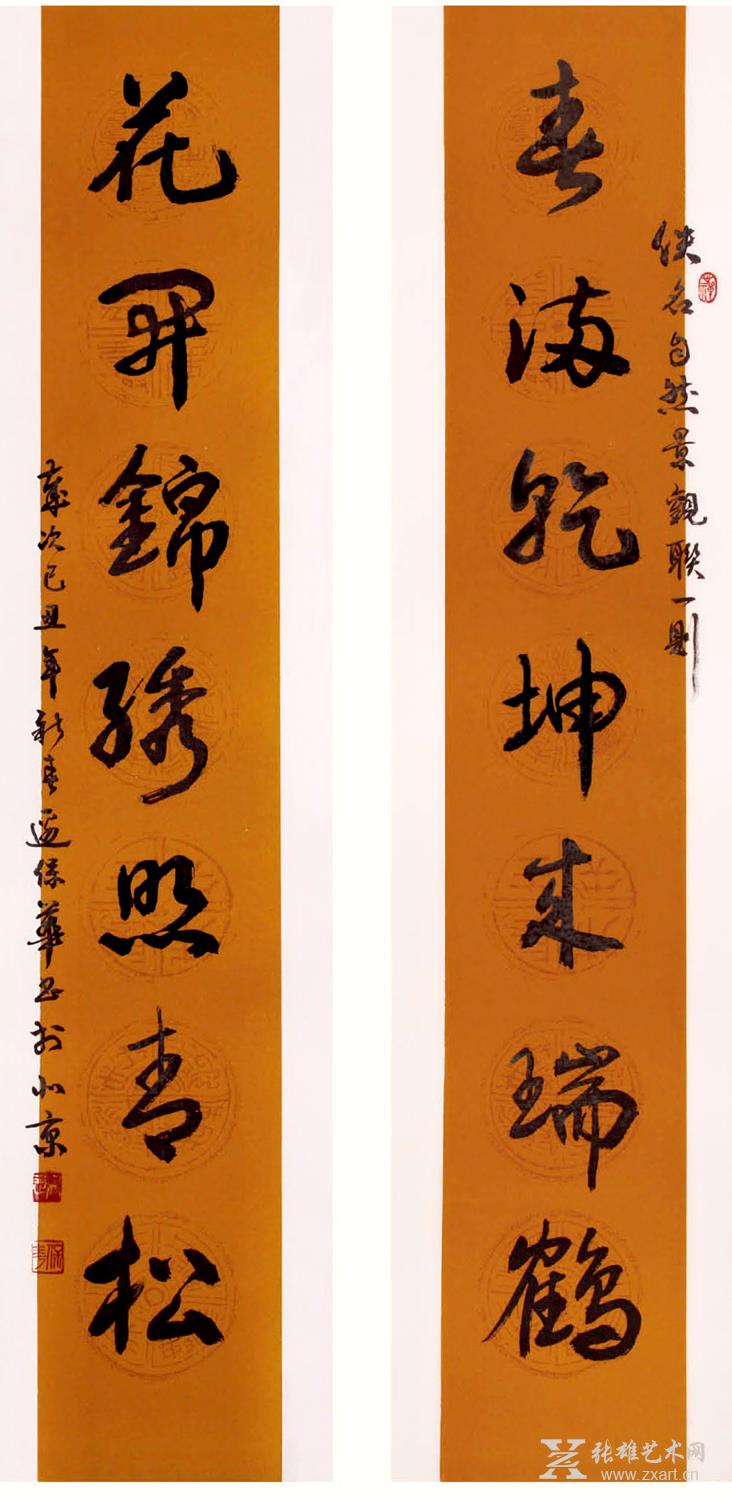 佚名自然景观联一则
春满乾坤来瑞鹤
花开锦绣照青松
岁次己丑年新春孟保华书于北京
张雄艺术网
www.zxart.cn